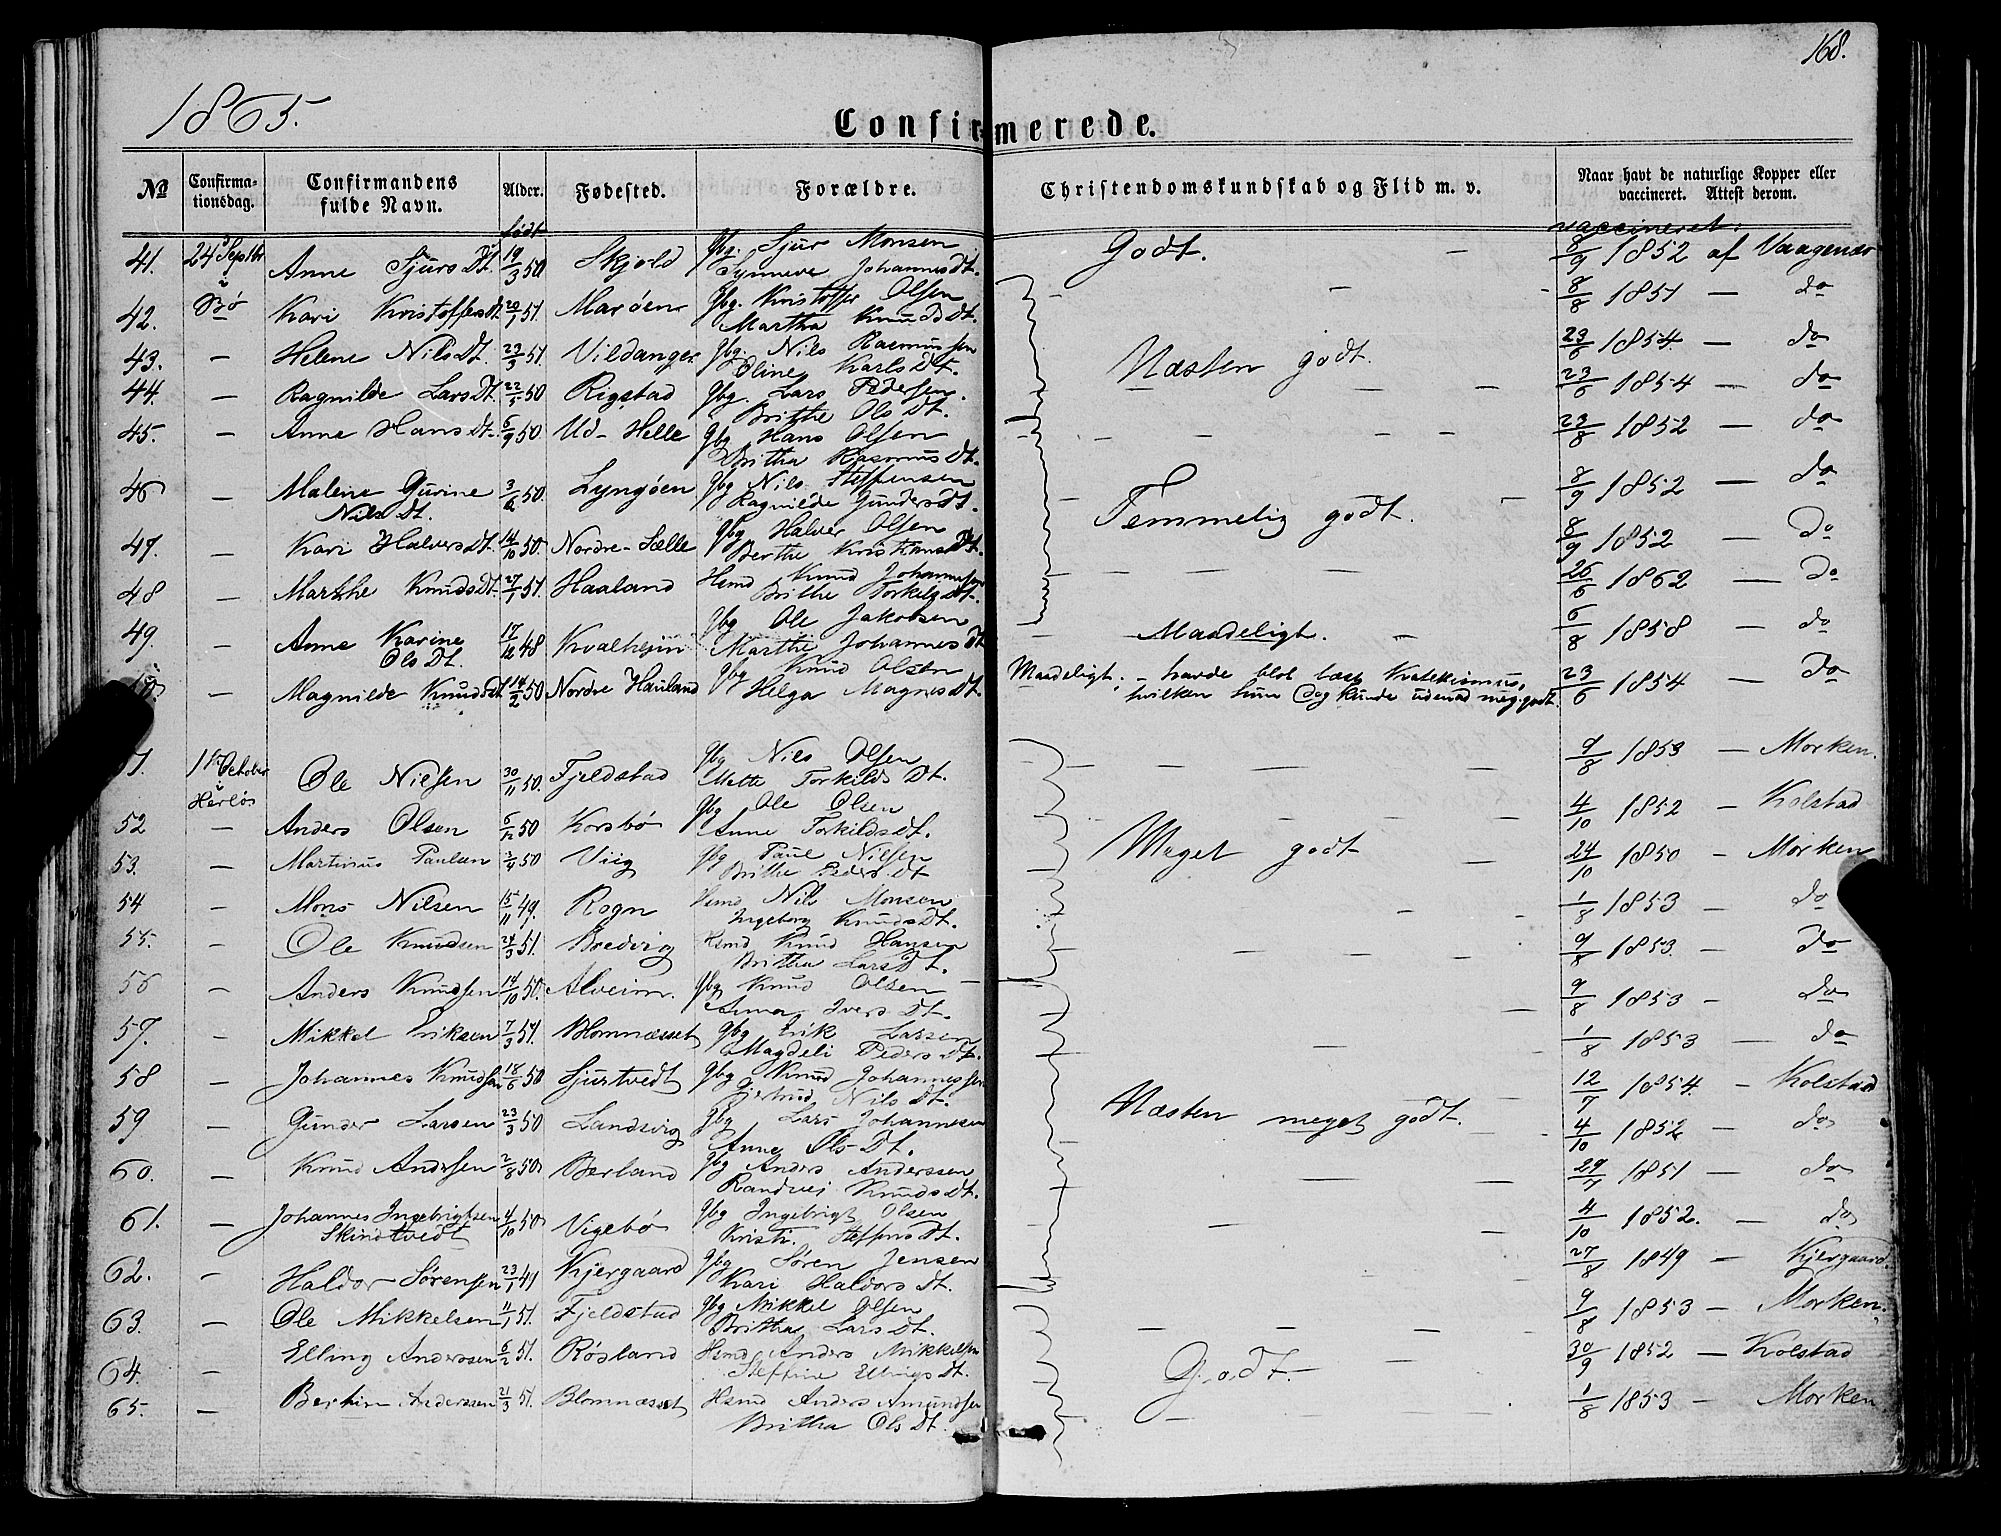 168.
1865.
Confirmerede.
No Confirmationsdag. Confirmandens fulde Navn. Alder. Fødested. Forældre. Christendomskundskab og Flid m. v. Naar havt de naturlige Kopper eller vaccineret. Attest derom.
født vaccineret:
41. 24 Septbr Anne Sjurs Dt. 19/3 50 Skjold Gbg. Sjur Monsen Godt. — 8/9 1852 af Vaagenæs
i Synneve Johannes Dt.
42. Bø Kari Kristoffers Dt. 20/1 51. Marøen Gbg. Kristoffer Olsen — — — 8/8 1851 — do
Martha Knuds Dt.
43. — Helene Nils Dt. 23/3 51 Vildanger Gbg. Nils Rasmussen Næsten godt. 23/6 1854. — do
Oline Karls Dt.
44. — Ragnilde Lars Dt. 22/5 50 Rigstad Gbg. Lars Pedersen. — — 23/6 1854 — do
Brithe Ols Dt.
45. — Anne Hans Dt. 6/9 50 Ud-Helle Gbg Hans Olsen — — — — — 23/8 1852 — do
Britha Rasmus Dt.
46 — Malene Gurine 3/6 50. Lyngøen Gbg Nils Steffensen — Temmelig godt. — 8/9 1852 — do
Nils Dt. Ragnilde Gunders Dt.
47. — Kari Halvers Dt. 14/10 50. Nordre-Sælle Gbg Halver Olsen 8/9 1852 — Do
Berthe Kristians Dt.
48 — Marthe Knuds Dt. 27/1 51. Haaland Hsmd Knud Johannessen — — — — — 26/6 1862 — Do
Brithe Torkils Dt.
49. — Anne Karine 17/12 48 Kvalheim Gbg Ole Jakobsen — Maadeligt. — 6/8 1858 — do
Ols Dt. Marthe Johannes Dt
— Magnilde Knuds Dt 14/2 50 Nordre Hauland Gbg Knud Olsen Maadeligt. — havde blot læst Katekismus, 23/6 1854 — Do
Helga Magnes Dt. hvilken hun dog kunde udenad meg. godt.
1. 1ste October Ole Nielsen 30/11 50. Fjeldstad Gbg Nils Olsen — — — — — 9/8 1853 — Morken.
i Herløe Mette Torkilds Dt.
52 — Anders Olsen 6/12 50 Korsbø Gbg Ole Olsen — — — 4/10 1852 — Kolstad
Anne Torkilds Dt.
53. — Martinus Paulsen 3/4 50 Viig Gbg Paul Nilsen Meget godt — 24/10 1850 — Morken
Brithe Peders Dt
54 — Mons Nilsen 15/11 49. Rogn Hsmd Nils Monsen — — 1/8 1853 — do
Ingeborg Knuds Dt.
55. — Ole Knudsen 24/3 51. Bredvig Hsmd Knud Hansen — — — 9/8 1853. — Do
Britha Lars Dt.
56 — Anders Knudsen 14/10 50. Alveim. Gbg Knud Olsen — 9/8 1853 — do
Anna Ivers Dt.
57. — Mikkel Eriksen 7/3 51. Blomnæsset Gbg Erik Larsen — — 1/8 1853 — do
Magdeli Peders Dt.
58 — Johannes Knudsen 18/6 50 Sjurtvedt Gbg Knud Johannessen — 12/7 1854. — Kolstad
Gjertrud Nils Dt.
59 — Gunder Larsen 23/3 50 Landsvig Gbg Lars Johannesen Næsten meget godt. — 4/10 1852 — do
Anne Ols Dt.
60. — Knud Andersen 2/8 50 Berland Gbg Anders Anderssen — — 29/7 1851 — do
Randvei Knuds Dt.
61. — Johannes Ingebrigtsen 4/10 50 Vigebø Gbg Ingebrigt Olsen — — 4/10 1852. — do
Skindtvedt Kristi. Steffens Dt.
62. — Haldor Sørensen 23/1 49 Kjergaard Gbg Søren Jensen — — 27/8 1849 — Kjergaard.
Kari Haldors Dt.
63. — Ole Mikkelsen 11/1 51. Fjeldstad Gbg Mikkel Olsen — — — — — 9/8 1853 — Morken.
Britha Lars Dt.
64. — Elling Anderssen 6/2 51. Røsland Hsmd Anders Mikkelsen Godt. — 30/9 1852 — Kolstad
Steffine Ellings Dt.
65. — Bertin Anderssen 21/3 51. Blomnæsset Hsmd Anders Amundsen — — — 1/8 1853 — Morken
Britha Ols Dt.